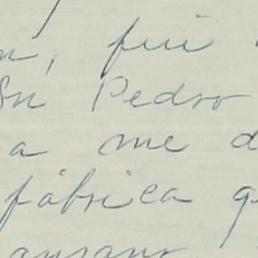 n, fui
Sn Pedro
a me d
fábrica q